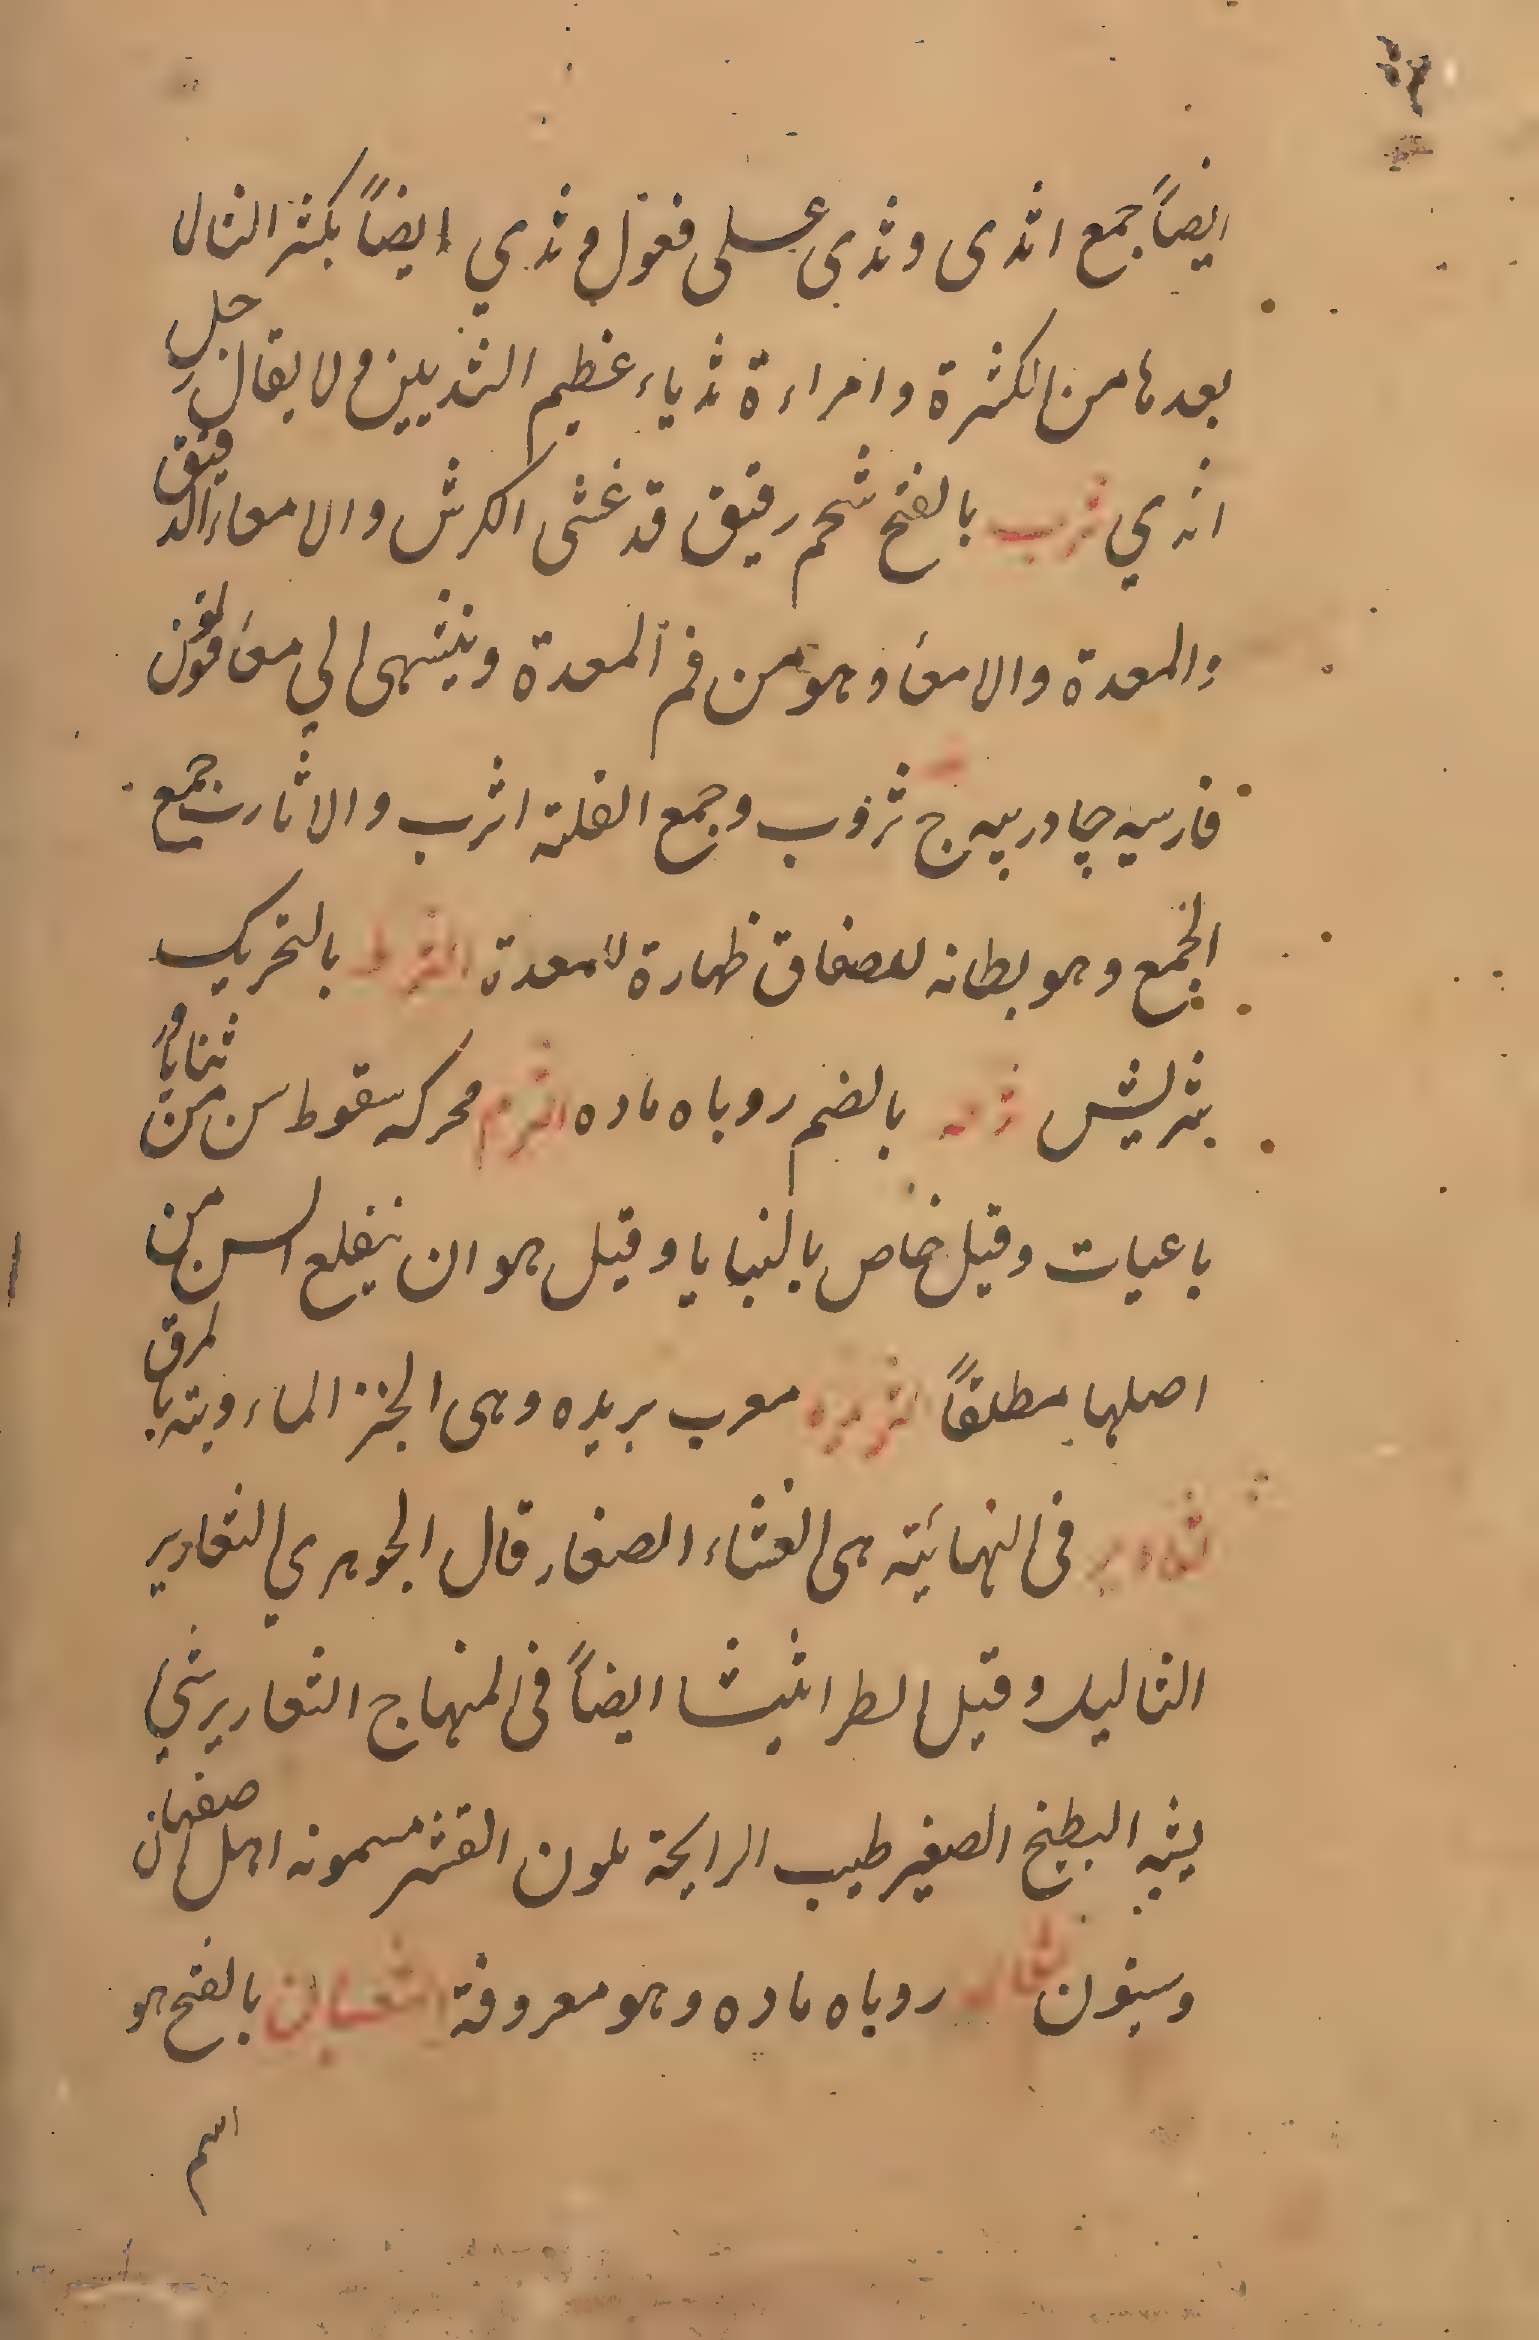 ايضاً جمع اثدى وثدى على فعول وثدي ايضاً بكثر التال
بعدها من الكثرة وامراءة ثدياء عظيم الثديين ولا يقال رجل
اثدي ثرب بالفتح شحم رقيق قد غشى الكرش والامعاء الدقيق
والمعدة والامعاَ وهو من فم المعدة وينتهى الي معاَ قولون
فارسيه چادر پيه ج ثروب وجمع القلته اثرب والاثارب جمع
الجمع وهو بطانه للصفاق ظهارة لامعدة الثرط بالتحريك
بثر لبش بالضم روباه ماده الثرم محركه سقوط سن من ثنايا و
باعيات وقيل خاص بالنبايا وقيل هو ان ينقلع السن من
اصلها مطلقاً الثريده معرب بريده وهى الخبز الماء وبته بالمرق
ثعارير فى النهائيته هى الغثاء الصغار قال الجوهري الثعارير
الثاليل وقيل الطراثيث ايضاً فى المنهاج الثعارير شئ
يشبه البطيخ الصغير طيب الرايحة بلون القشر مسمونه اهل صفهان
وستون ثعاله روباه ماده وهو معروفة الثعبان بالفتح هو
اسم